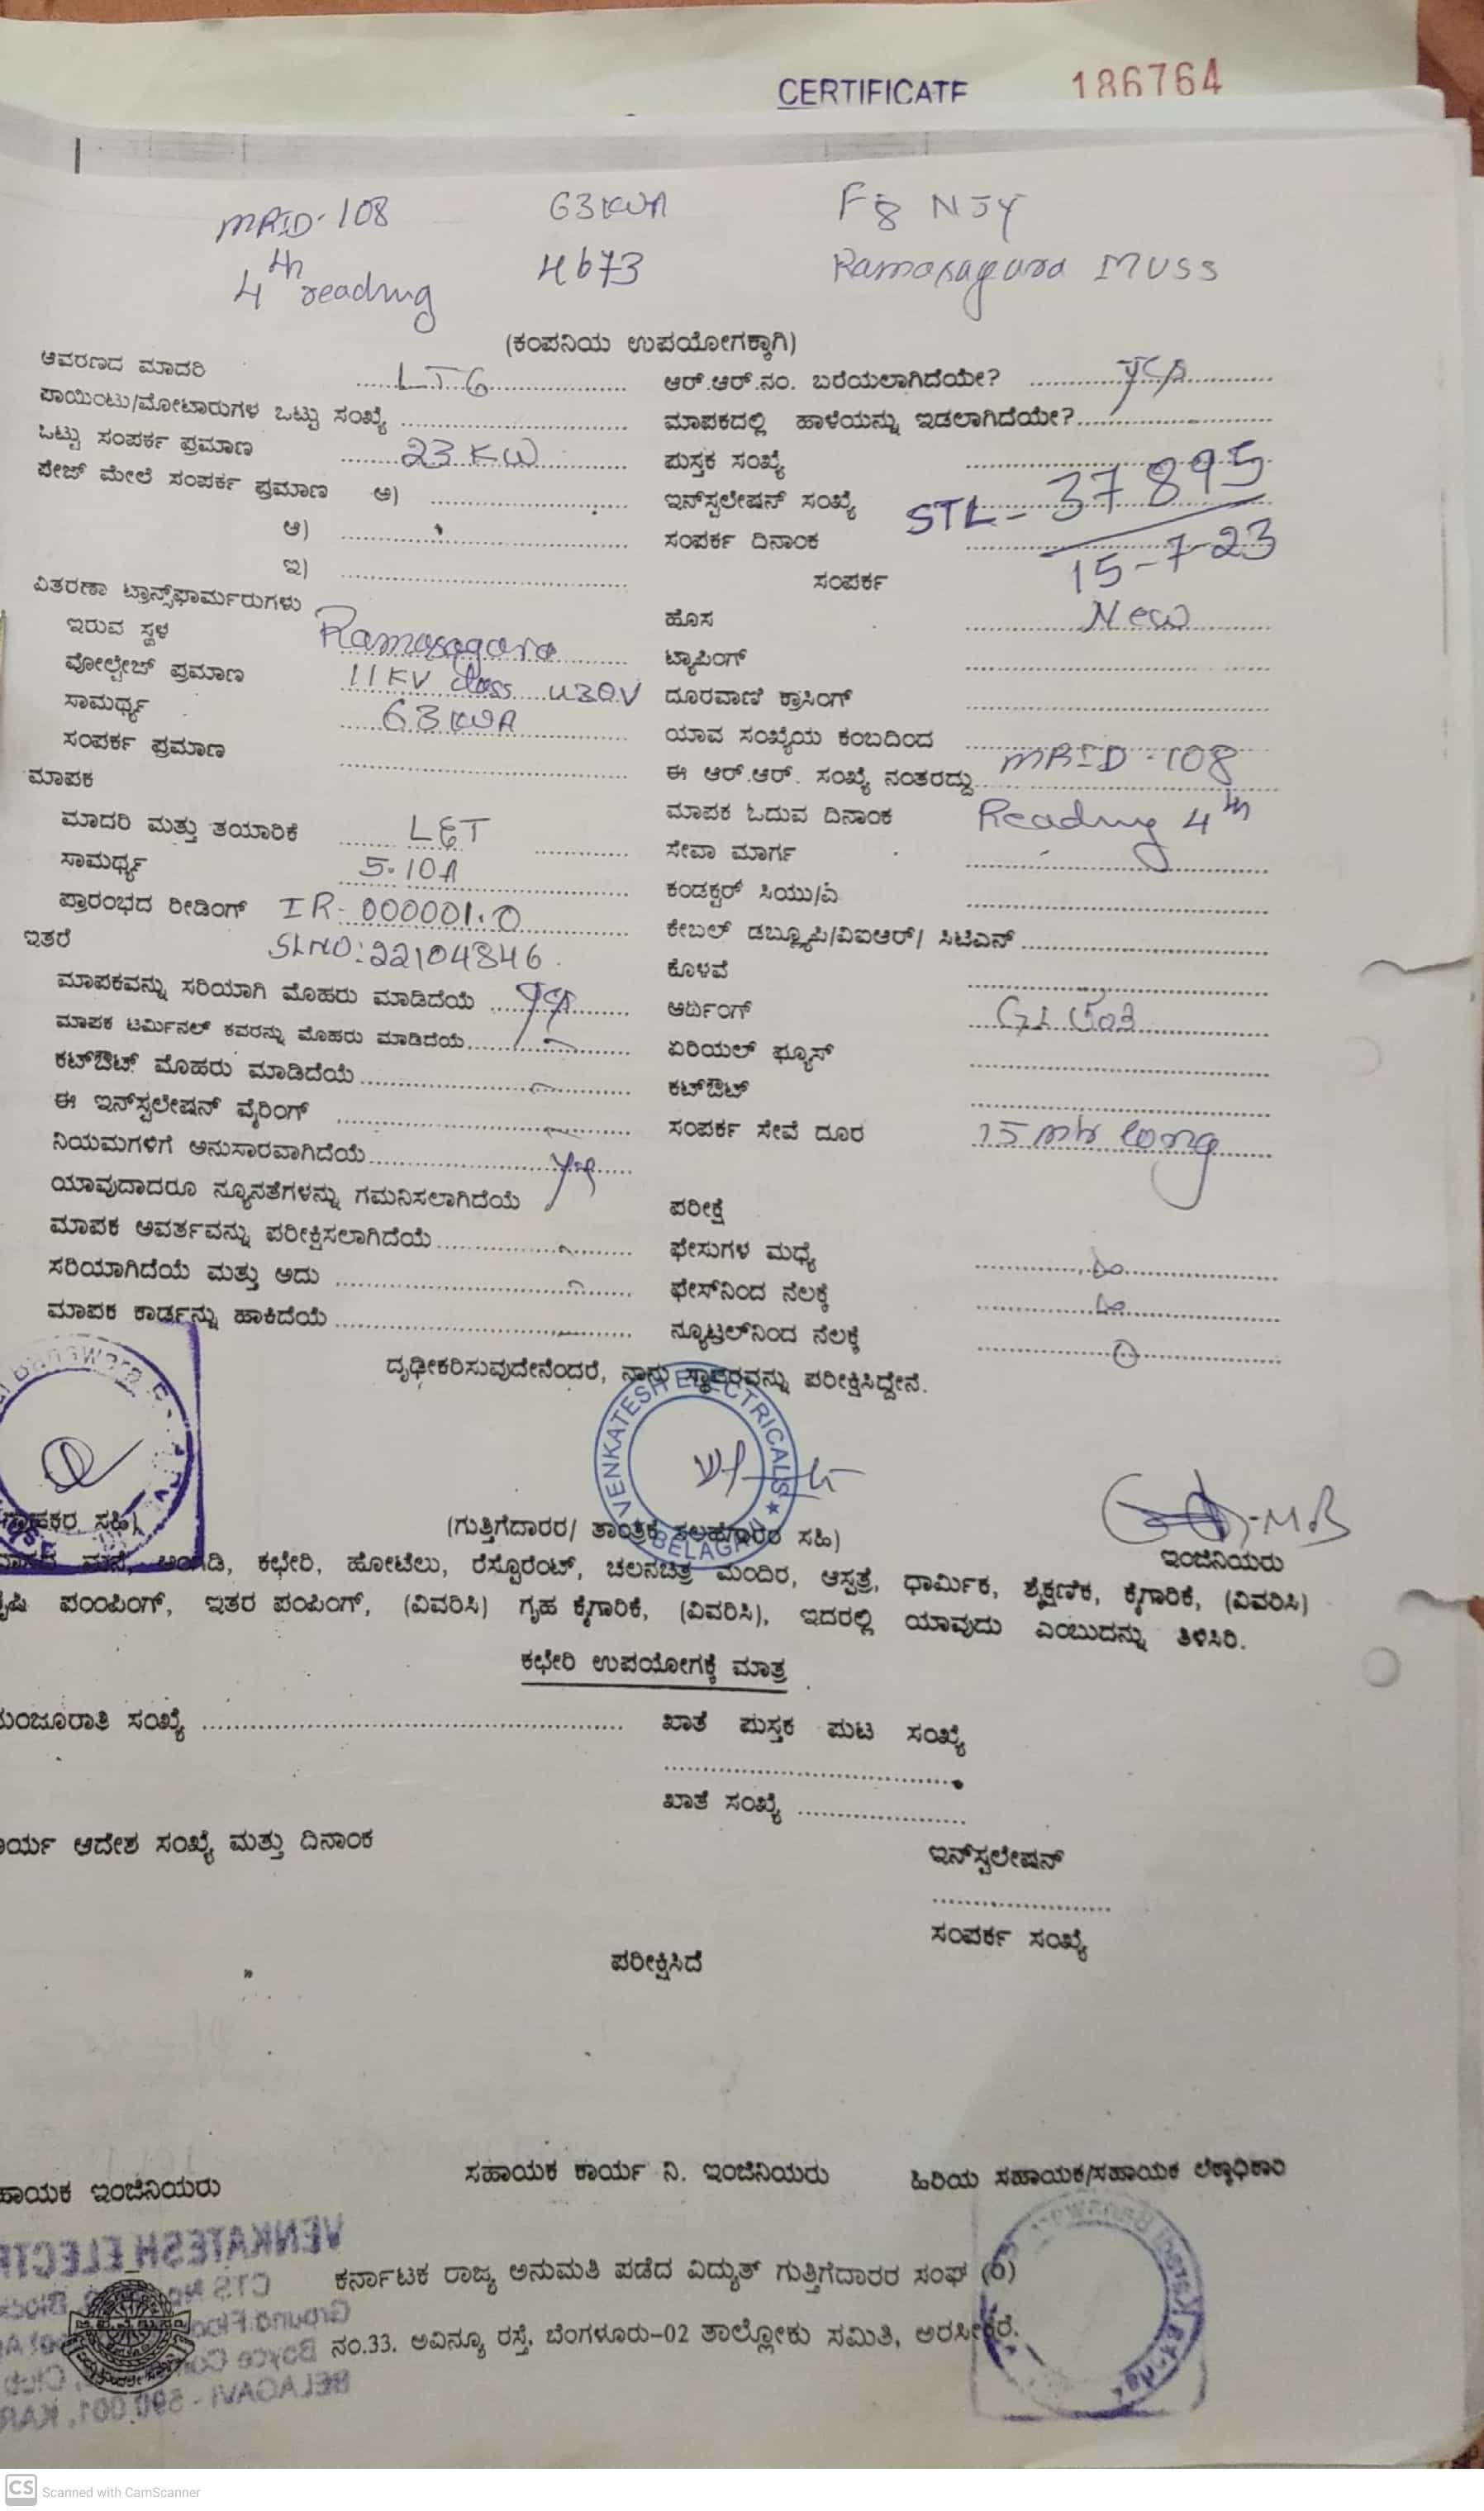 CERTIFICATE 186764
MRID-108 63KVA F8 NJY
4th reading 4673 Ramasagara MUSS
(ಕಂಪನಿಯ ಉಪಯೋಗಕ್ಕಾಗಿ)
ಆವರಣದ ಮಾದರಿ LT6 ಆರ್.ಆರ್.ನಂ. ಬರೆಯಲಾಗಿದೆಯೇ? yes
ಪಾಯಿಂಟು/ಮೋಟಾರುಗಳ ಒಟ್ಟು ಸಂಖ್ಯೆ ಮಾಪಕದಲ್ಲಿ ಹಾಳೆಯನ್ನು ಇಡಲಾಗಿದೆಯೇ?
ಒಟ್ಟು ಸಂಪರ್ಕ ಪ್ರಮಾಣ 23 KW ಪುಸ್ತಕ ಸಂಖ್ಯೆ
ಪೇಜ್ ಮೇಲೆ ಸಂಪರ್ಕ ಪ್ರಮಾಣ ಅ) ಇನ್‌ಸ್ಟಲೇಷನ್ ಸಂಖ್ಯೆ STL- 37895
ಆ) ಸಂಪರ್ಕ ದಿನಾಂಕ 15-7-23
ಇ) ಸಂಪರ್ಕ
ವಿತರಣಾ ಟ್ರಾನ್ಸ್‌ಫಾರ್ಮರುಗಳು
ಇರುವ ಸ್ಥಳ Ramasagara ಹೊಸ New
ವೋಲ್ಟೇಜ್ ಪ್ರಮಾಣ 11KV class 430V ಟ್ಯಾಪಿಂಗ್
ಸಾಮರ್ಥ್ಯ 63KVA ದೂರವಾಣಿ ಕ್ರಾಸಿಂಗ್
ಸಂಪರ್ಕ ಪ್ರಮಾಣ ಯಾವ ಸಂಖ್ಯೆಯ ಕಂಬದಿಂದ
ಮಾಪಕ ಈ ಆರ್.ಆರ್. ಸಂಖ್ಯೆ ನಂತರದ್ದು MRID-108
ಮಾದರಿ ಮತ್ತು ತಯಾರಿಕೆ L&T ಮಾಪಕ ಓದುವ ದಿನಾಂಕ Reading 4th
ಸಾಮರ್ಥ್ಯ 5-10A ಸೇವಾ ಮಾರ್ಗ
ಪ್ರಾರಂಭದ ರೀಡಿಂಗ್ IR-000001.0 ಕಂಡಕ್ಟರ್ ಸಿಯು/ಎ
ಇತರೆ SLNO:22104846 ಕೇಬಲ್ ಡಬ್ಲ್ಯೂಪಿ/ವಿಐಆರ್/ ಸಿಟಿಎಸ್
ಮಾಪಕವನ್ನು ಸರಿಯಾಗಿ ಮೊಹರು ಮಾಡಿದೆಯೆ ಕೊಳವೆ
ಮಾಪಕ ಟರ್ಮಿನಲ್ ಕವರನ್ನು ಮೊಹರು ಮಾಡಿದೆಯೆ ಆರ್ಥಿಂಗ್ GI
ಕಟ್‌ಔಟ್ ಮೊಹರು ಮಾಡಿದೆಯೆ ಏರಿಯಲ್ ಫ್ಯೂಸ್
ಈ ಇನ್‌ಸ್ಟಲೇಷನ್ ವೈರಿಂಗ್ ಕಟ್‌ಔಟ್
ನಿಯಮಗಳಿಗೆ ಅನುಸಾರವಾಗಿದೆಯೆ ಸಂಪರ್ಕ ಸೇವೆ ದೂರ 15 mtr long
ಯಾವುದಾದರೂ ನ್ಯೂನತೆಗಳನ್ನು ಗಮನಿಸಲಾಗಿದೆಯೆ ಪರೀಕ್ಷೆ
ಮಾಪಕ ಆವರ್ತವನ್ನು ಪರೀಕ್ಷಿಸಲಾಗಿದೆಯೆ ಫೇಸುಗಳ ಮಧ್ಯೆ
ಸರಿಯಾಗಿದೆಯೆ ಮತ್ತು ಅದು ಫೇಸ್‌ನಿಂದ ನೆಲಕ್ಕೆ
ಮಾಪಕ ಕಾರ್ಡನ್ನು ಹಾಕಿದೆಯೆ ನ್ಯೂಟ್ರಲ್‌ನಿಂದ ನೆಲಕ್ಕೆ
ದೃಢೀಕರಿಸುವುದೇನೆಂದರೆ, ನಾನು ಸ್ಥಾವರವನ್ನು ಪರೀಕ್ಷಿಸಿದ್ದೇನೆ.
VENKATESH ELECTRICALS ★ BELAGAVI
ಗ್ರಾಹಕರ ಸಹಿ) (ಗುತ್ತಿಗೆದಾರರ/ ತಾಂತ್ರಿಕ ಸಲಹೆಗಾರರ ಸಹಿ) ಇಂಜಿನಿಯರು
ಮನೆ, ಅಂಗಡಿ, ಕಛೇರಿ, ಹೋಟೆಲು, ರೆಸ್ಟೊರೆಂಟ್, ಚಲನಚಿತ್ರ ಮಂದಿರ, ಆಸ್ಪತ್ರೆ, ಧಾರ್ಮಿಕ, ಶೈಕ್ಷಣಿಕ, ಕೈಗಾರಿಕೆ, (ವಿವರಿಸಿ)
ಪಂಪಿಂಗ್, ಇತರ ಪಂಪಿಂಗ್, (ವಿವರಿಸಿ) ಗೃಹ ಕೈಗಾರಿಕೆ, (ವಿವರಿಸಿ), ಇದರಲ್ಲಿ ಯಾವುದು ಎಂಬುದನ್ನು ತಿಳಿಸಿರಿ.
ಕಛೇರಿ ಉಪಯೋಗಕ್ಕೆ ಮಾತ್ರ
ಮಂಜೂರಾತಿ ಸಂಖ್ಯೆ ಖಾತೆ ಪುಸ್ತಕ ಪುಟ ಸಂಖ್ಯೆ
ಖಾತೆ ಸಂಖ್ಯೆ
ಕಾರ್ಯ ಆದೇಶ ಸಂಖ್ಯೆ ಮತ್ತು ದಿನಾಂಕ
ಇನ್‌ಸ್ಟಲೇಷನ್
ಸಂಪರ್ಕ ಸಂಖ್ಯೆ
ಪರೀಕ್ಷಿಸಿದೆ
ಸಹಾಯಕ ಇಂಜಿನಿಯರು ಸಹಾಯಕ ಕಾರ್ಯ ನಿ. ಇಂಜಿನಿಯರು ಹಿರಿಯ ಸಹಾಯಕ/ಸಹಾಯಕ ಲೆಕ್ಕಾಧಿಕಾರಿ
ಕರ್ನಾಟಕ ರಾಜ್ಯ ಅನುಮತಿ ಪಡೆದ ವಿದ್ಯುತ್ ಗುತ್ತಿಗೆದಾರರ ಸಂಘ (ರಿ)
ನಂ.33. ಅವಿನ್ಯೂ ರಸ್ತೆ, ಬೆಂಗಳೂರು-02 ತಾಲ್ಲೋಕು ಸಮಿತಿ, ಅರಸೀಕೆರೆ.
CS Scanned with CamScanner